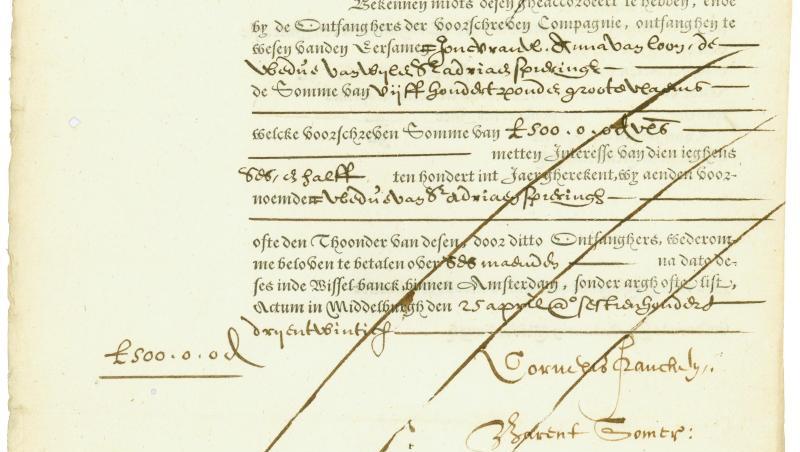 Bekennen mits desen gheaccordeert te hebben, ende
by de Ontfanghers der voorschreven Compagnie, ontfanghen te
wesen vanden Eersame Joncvrauw. Anna van loon, de
wedue van wijlen Sr adriaen spieringh
de Somme van vijff hondert ponden groote vlaems
welcke voorschreven Somme van £500.0.0d vls
metten Interesse van dien ieghens
Ses, en halff ten hondert int Jaer gherekent, wy aenden voor-
noemde wedue van Sr adriaen spieringh
ofte den Thoonder van desen, door ditto Ontfanghers, wederom-
me beloven te betalen over ses maenden na dato de-
ses inde Wissel-banck binnen Amsterdam, sonder argh ofte list,
Actum in Middelburgh den 25 april Ao sestienhondert
drijentwintich
£500.0.0d
Cornelis
Barent Somer: